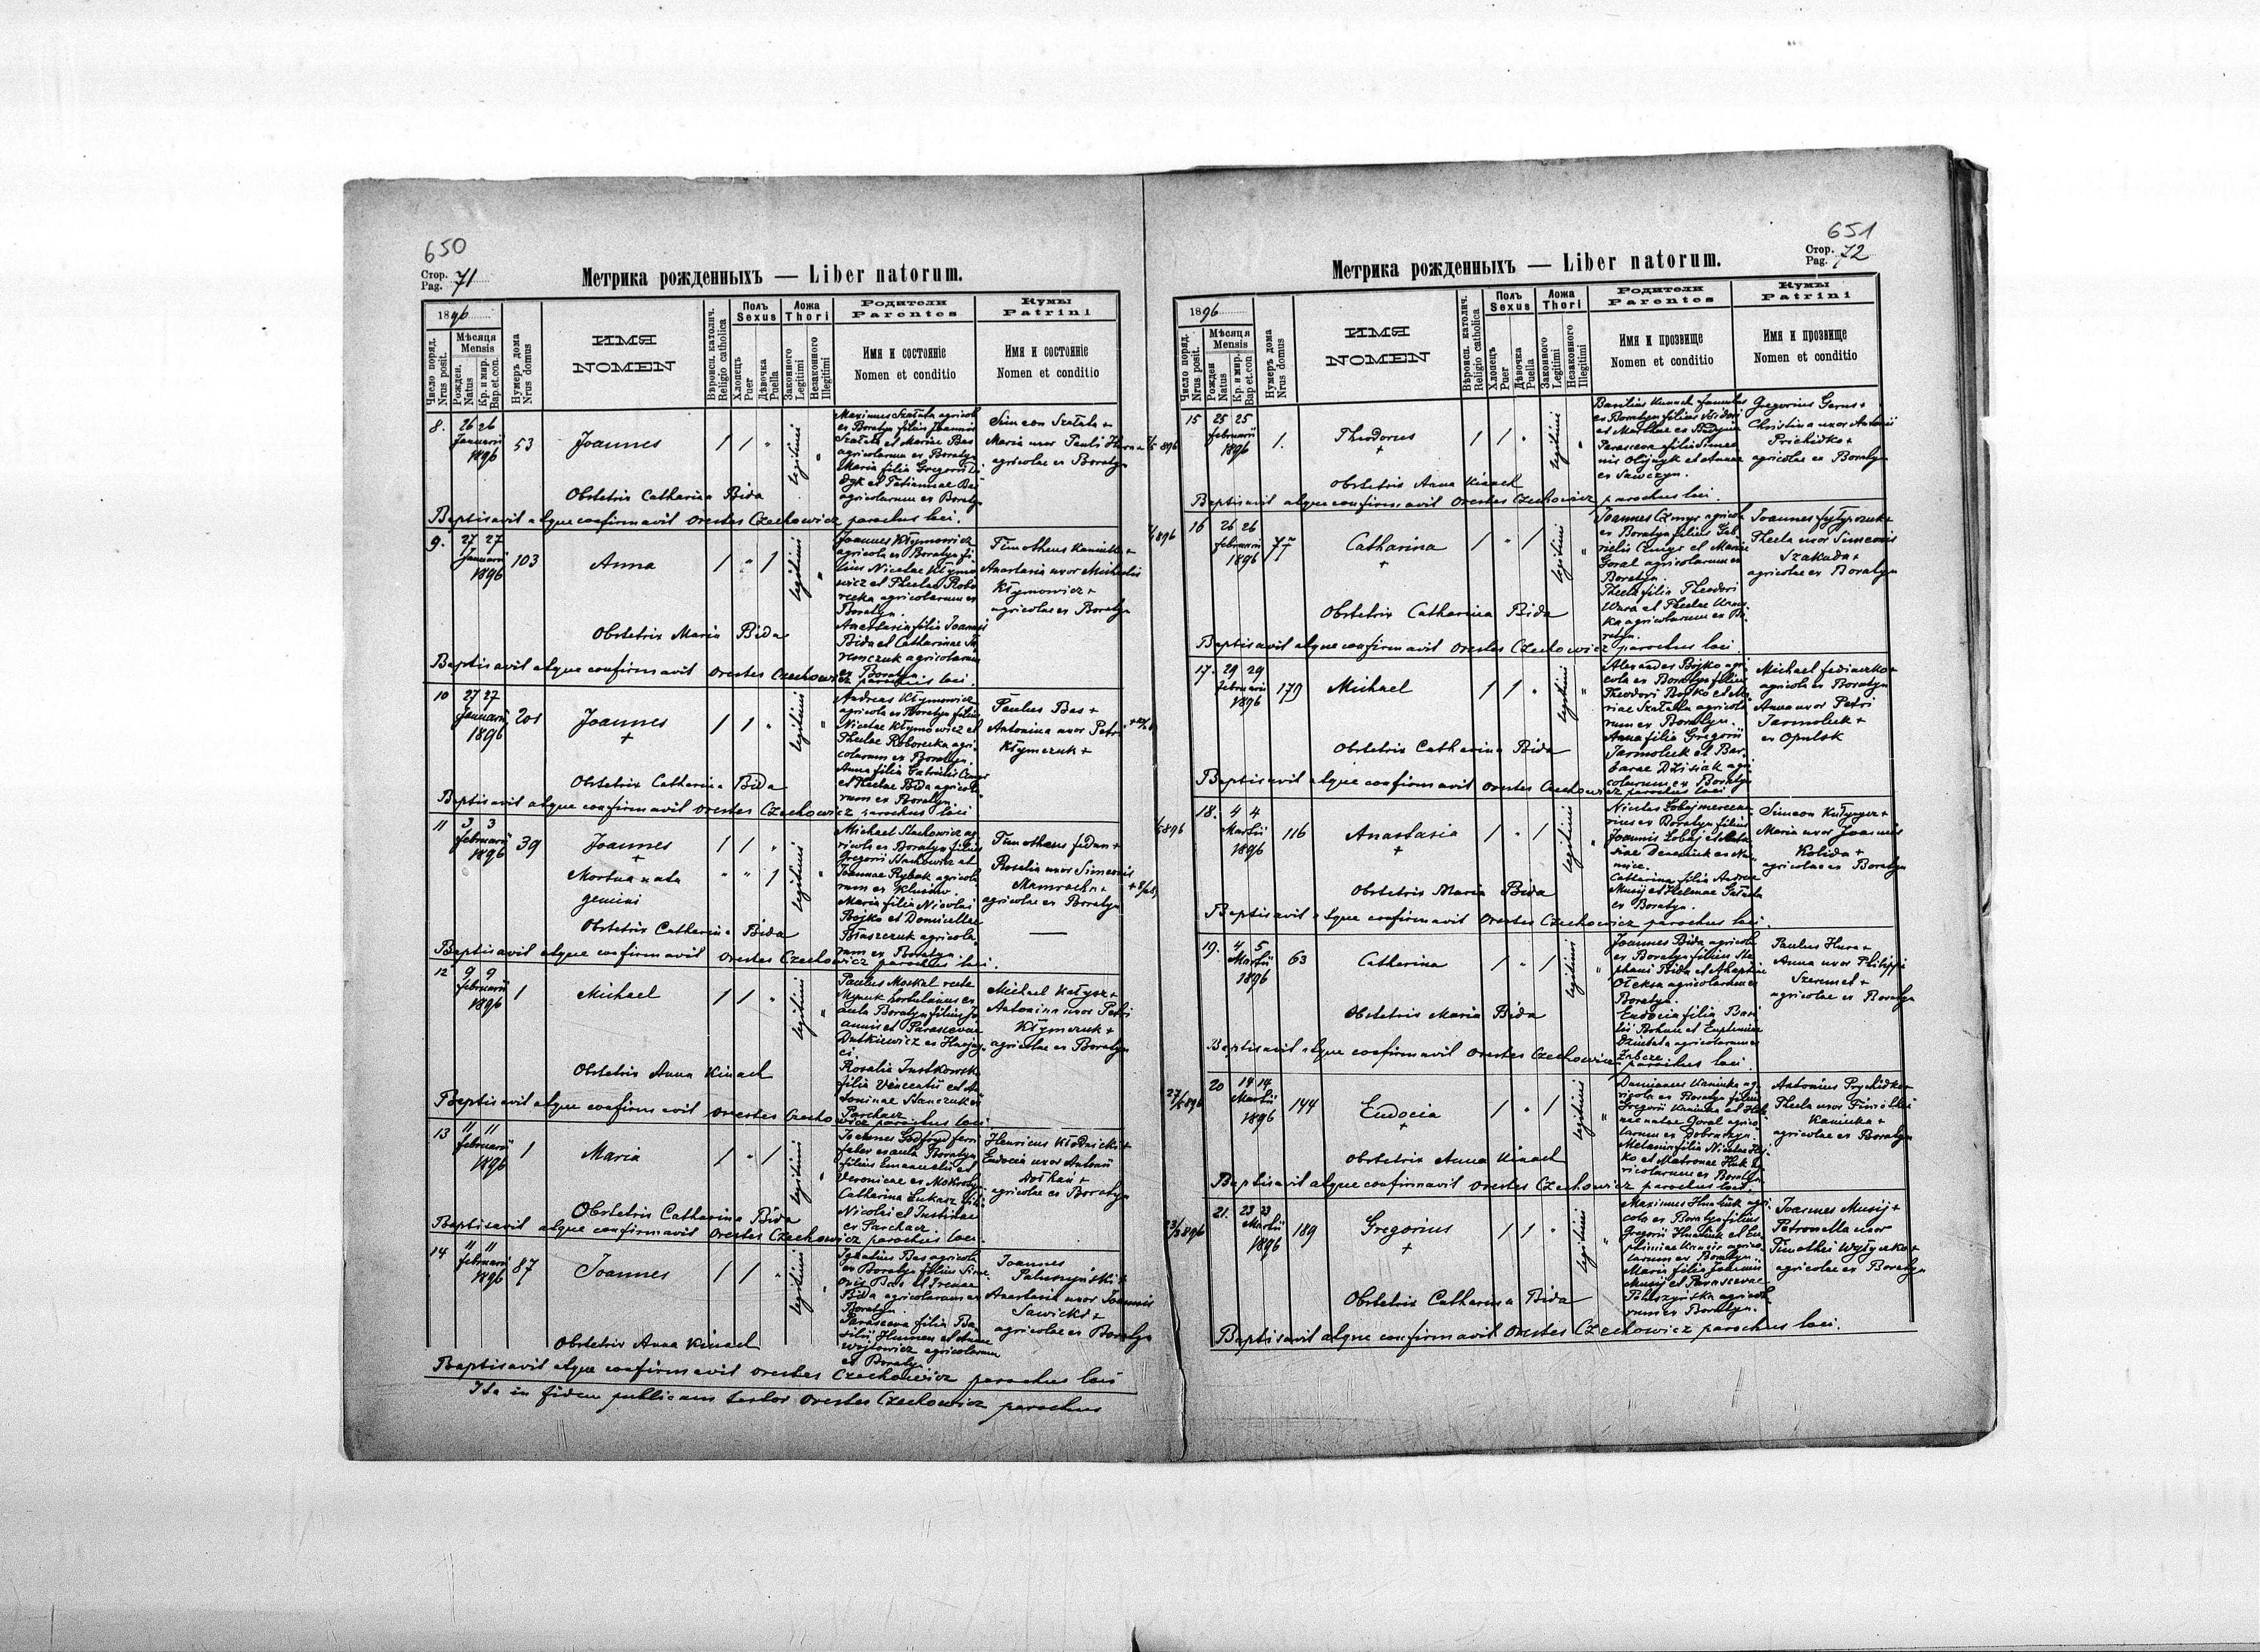 650
Стор.
Pag. 71
Метрика рожденныхъ — Liber natorum.
1896
Число поряд.
Nrus posit.
Мѣсяця
Mensis
Рожден.
Natus
Кр. и мир.
Bap. et. con.
Нумеръ дома
Nrus domus
ИМЯ
NOMEN
Вѣроисп. католич.
Religio catholica
Полъ
Sexus
Хлопецъ
Puer
Дѣвочка
Puella
Ложа
Thori
Законного
Legitimi
Незаконного
Illegitimi
Родители
Parentes
Имя и состояніе
Nomen et conditio
Кумы
Patrini
Имя и состояніе
Nomen et conditio
8. 26 26 Januarii 1896 53 Joannes 1 1 " legitimi "
Maximus Szałata agricola
ex Boratyn filius Joannis
Szałata et Mariae Bas
agricolarum ex Boratyn
Maria filia Gregorii
et Tatiannae Bas
agricolarum ex Boratyn
Simeon Szałata +
Maria uxor Pauli Hura
agricolae ex Boratyn
Obstetrix Catharina Bida
Baptisavit atque confirmavit Orestes Czechowicz parochus loci.
9. 27 27 Januarii 1896 103 Anna 1 " 1 legitimi "
Joannes Kłymowicz
agricola ex Boratyn fi
lius Nicolae Kłymo
wicz et Theclae Robo
recka agricolarum ex
Boratyn.
Anastasia filia Joannis
Bida et Catharinae
agricolarum
ex Boratyn.
Timotheus Kaminka +
Anastasia uxor Michaelis
Kłymowicz +
agricolae ex Boratyn
Obstetrix Maria Bida
Baptisavit atque confirmavit Orestes Czechowicz parochus loci.
10 27 27 Januarii 1896 201 Joannes + 1 1 " legitimi "
Andreas Kłymowicz
agricola ex Boratyn filius
Nicolae Kłymowicz et
Theclae Roborecka agri
colarum ex Boratyn.
Anna filia Gabrielis Czmyr
et Theclae Bida agricola
rum ex Boratyn.
Paulus Bas +
Antonina uxor Petri
Kłymczuk +
Obstetrix Catharina Bida
Baptisavit atque confirmavit Orestes Czechowicz parochus loci
11 3 3 februarii 1896 39 Joannes + 1 1 " legitimi "
Mortua nata " " 1
gemini
Michael Stachowicz ag
ricola ex Boratyn filius
Gregorii Stachowicz et
Joannae Rybak agricola
rum ex Klusów.
Maria filia Nicolai
Bojko et Domicellae
Błaszczuk agricola
rum ex Boratyn.
Timotheus fedun +
Rosalia uxor Simeonis
agricolae ex Boratyn
Obstetrix Catharina Bida
Baptisavit atque confirmavit Orestes Czechowicz parochus loci.
12 9 9 februarii 1896 1 Michael 1 1 " legitimi "
Paulus Moskal recte
hortulanus ex
aula Boratyn filius Jo
annis et Parascevae
Dutkiewicz ex
Rosalia Justkowska
filia Vincentii et An
toninae Stanczuk ex
Parchacz
Michael Kałysz +
Antonina uxor Petri
Kłymczuk +
agricolae ex Boratyn
Obstetrix Anna Kinach
Baptisavit atque confirmavit Orestes Czechowicz parochus loci
13 11 11 februarii 1896 1 Maria 1 " 1 legitimi "
Joannes Godfryd ferri
faber ex aula Boratyn
filius Emanuelis et
Veronicae ex
Catharina Łukacz filia
Nicolai et Justinae
ex Parchacz.
Henricus
Eudocia uxor Antonii
agricolae ex Boratyn
Obstetrix Catharina Bida
Baptisavit atque confirmavit Orestes Czechowicz parochus loci.
14 11 11 februarii 1896 87 Joannes 1 1 " legitimi "
Ignatius Bas agricola
ex Boratyn filius Sime
onis Bas et Irenae
Bida agricolarum ex
Boratyn.
Parasceva filia Ba
silii Humen et Annae
Wojtowicz agricolarum
ex Boratyn
Joannes
Paluszyński +
Anastasia uxor Joannis
Sawicki +
agricolae ex Boratyn
Obstetrix Anna Kinach
Baptisavit atque confirmavit Orestes Czechowicz parochus loci
Ita in fidem publicam testor Orestes Czechowicz parochus
651
Стор.
Pag. 72
Метрика рожденныхъ — Liber natorum.
1896
Число поряд.
Nrus posit.
Мѣсяця
Mensis
Рожден
Natus
Кр. и мир.
Bap. et. con.
Нумеръ дома
Nrus domus
ИМЯ
NOMEN
Вѣроисп. католич.
Religio catholica
Полъ
Sexus
Хлопецъ
Puer
Дѣвочка
Puella
Ложа
Thori
Законного
Legitimi
Незаконного
Illegitimi
Родители
Parentes
Имя и прозвище
Nomen et conditio
Кумы
Patrini
Имя и прозвище
Nomen et conditio
15 25 25 februarii 1896 1. Theodorus + 1 1 " legitimi "
Basilius Kunach famulus
ex Boratyn filius Isidori
et Marthae ex
Parasceva filia Simeo
nis Olijnyk et Annae
ex Sawczyn.
Gregorius Gerus +
Christina uxor Antonii
Prichidko +
agricolae ex Boratyn
Obstetrix Anna Kinach
Baptisavit atque confirmavit Orestes Czechowicz parochus loci.
16 26 26 februarii 1896 77 Catharina + 1 " 1 legitimi "
Joannes Czmyr agricola
ex Boratyn filius Gab
rielis Czmyr et Mariae
Goral agricolarum ex
Boratyn.
Thecla filia Theodori
et Theclae
agricolarum ex Bo
ratyn.
Joannes fyłypczuk +
Thecla uxor Simeonis
Szakada +
agricolae ex Boratyn
Obstetrix Catharina Bida
Baptisavit atque confirmavit Orestes Czechowicz parochus loci.
17. 29 29 februarii 1896 179 Michael 1 1 " legitimi "
Alexander Bojko agri
cola ex Boratyn filius
Theodori Bojko et Ma
riae Szałata agricola
rum ex Boratyn.
Anna filia Gregorii
Jarmoluk et Bar
barae Dzisiak agri
colarum ex Boratyn
Michael fediaczko +
agricola ex Boratyn
Anna uxor Petri
Jarmoluk +
ex Opulsk
Obstetrix Catharina Bida
Baptisavit atque confirmavit Orestes Czechowicz parochus loci
18. 4 4 Martii 1896 116 Anastasia + 1 " 1 legitimi "
Nicolaus Łobaj mercena
rius ex Boratyn filius
Joannis Łobaj et
Catharina filia Andreae
Musij et Helenae Szałata
ex Boratyn.
Simeon
Maria uxor Joannis
Kolida +
agricolae ex Boratyn
Obstetrix Maria Bida
Baptisavit atque confirmavit Orestes Czechowicz parochus loci.
19. 4 5 Martii 1896 63 Catharina 1 " 1 legitimi "
Joannes Bida agricola
ex Boratyn filius Ste
phani Bida et Ahaphiae
Ołeksa agricolarum ex
Boratyn.
Eudocia filia Basi
lii Bohun et Euphemiae
agricolarum ex
Paulus Hura +
Anna uxor Philippi
Szeremet +
agricolae ex Boratyn
Obstetrix Maria Bida
Baptisavit atque confirmavit Orestes Czechowicz parochus loci.
20 14 14 Martii 1896 144 Eudocia + 1 " 1 legitimi "
Damianus Kaminka ag
ricola ex Boratyn filius
Gregorii Kaminka et Hele
nae natae Goral agrico
larum ex Dobraczyn.
Melania filia Nicolae
et Matronae Huk ag
ricolarum ex Boratyn
Antonius Prychidko +
Thecla uxor Timothei
Kaminka +
agricolae ex Boratyn
Obstetrix Anna Kinach
Baptisavit atque confirmavit Orestes Czechowicz parochus loci.
21. 23 23 Martii 1896 189 Gregorius + 1 1 " legitimi "
Maximus Hnatiuk agri
cola ex Boratyn filius
Gregorii Hnatiuk et Eu
phimiae agrico
larum ex Boratyn.
Maria filia Joannis
Musij et Parascevae
Paluszyńska agricola
rum ex Boratyn.
Joannes Musij +
Petronella uxor
Timothei
agricolae ex Boratyn
Obstetrix Catharina Bida
Baptisavit atque confirmavit Orestes Czechowicz parochus loci.